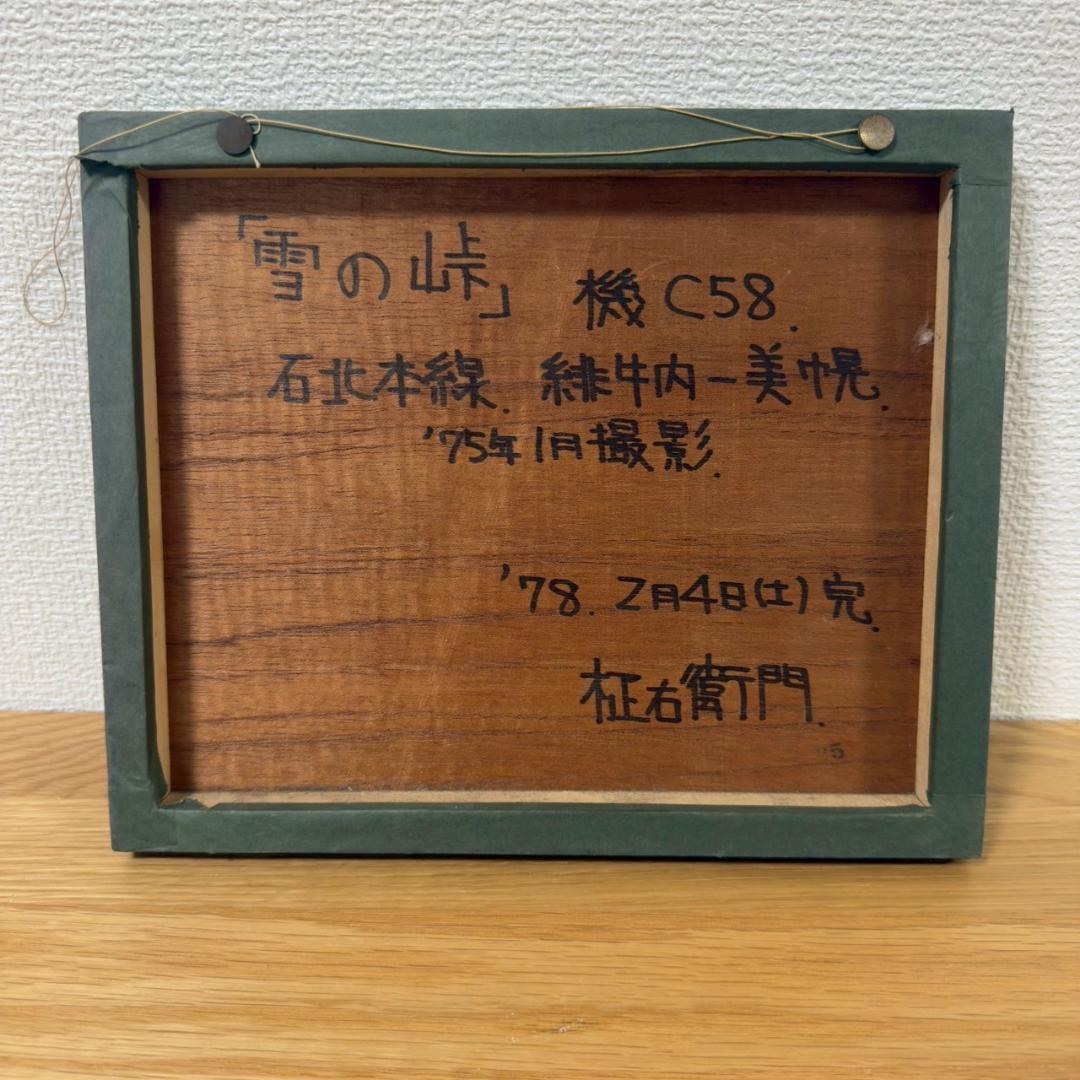 「雪の峠」 機 C58.
石北本線. 緋牛内ー美幌.
'75年1月撮影.
'78. 2月4日(土)完.
柾右衛門.
5